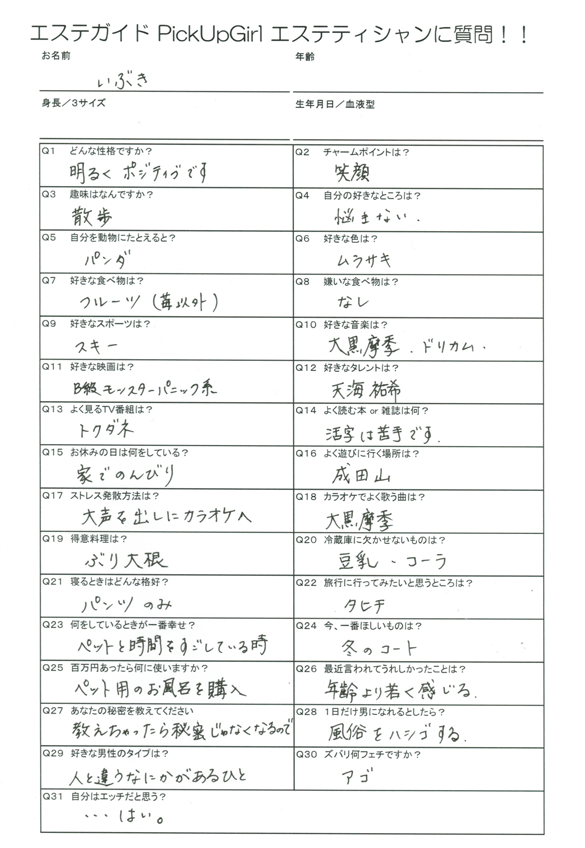 エステガイド PickUpGirl エステティシャンに質問！！
お名前
いぶき
年齢
身長／3サイズ
生年月日／血液型
Q1 どんな性格ですか？
明るく ポジティブです
Q2 チャームポイントは？
笑顔
Q3 趣味はなんですか？
散歩
Q4 自分の好きなところは？
悩まない．
Q5 自分を動物にたとえると？
パンダ
Q6 好きな色は？
ムラサキ
Q7 好きな食べ物は？
フルーツ（苺以外）
Q8 嫌いな食べ物は？
なし
Q9 好きなスポーツは？
スキー
Q10 好きな音楽は？
大黒摩季．ドリカム．
Q11 好きな映画は？
B級モンスターパニック系
Q12 好きなタレントは？
天海祐希
Q13 よく見るTV番組は？
トクダネ
Q14 よく読む本 or 雑誌は何？
活字は苦手です．
Q15 お休みの日は何をしている？
家でのんびり
Q16 よく遊びに行く場所は？
成田山
Q17 ストレス発散方法は？
大声を出しにカラオケへ
Q18 カラオケでよく歌う曲は？
大黒摩季
Q19 得意料理は？
ぶり大根
Q20 冷蔵庫に欠かせないものは？
豆乳、コーラ
Q21 寝るときはどんな格好？
パンツのみ
Q22 旅行に行ってみたいと思うところは？
タヒチ
Q23 何をしているときが一番幸せ？
ペットと時間をすごしている時
Q24 今、一番ほしいものは？
冬のコート
Q25 百万円あったら何に使いますか？
ペット用のお風呂を購入
Q26 最近言われてうれしかったことは？
年齢より若く感じる．
Q27 あなたの秘密を教えてください
教えちゃったら秘密じゃなくなるので
Q28 1日だけ男になれるとしたら？
風俗をハシゴする．
Q29 好きな男性のタイプは？
人と違うなにかがあるひと
Q30 ズバリ何フェチですか？
アゴ
Q31 自分はエッチだと思う？
・・・はい。